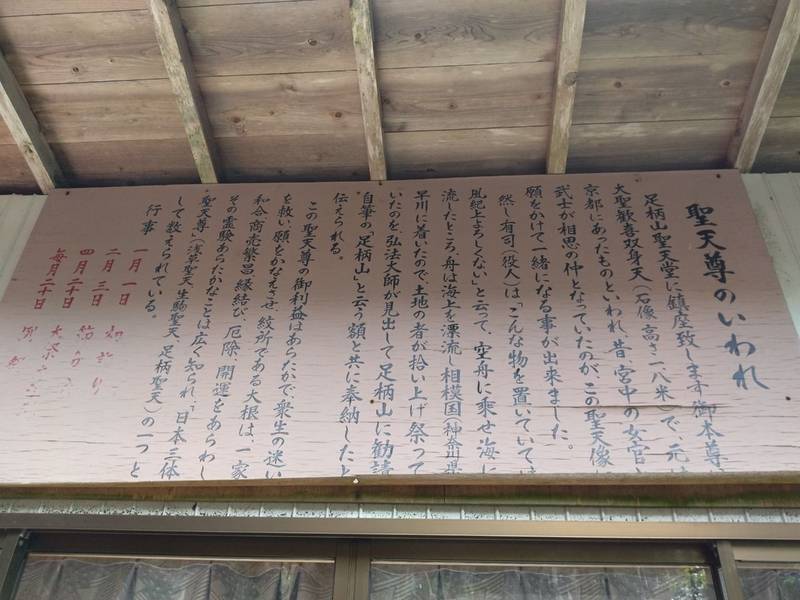 聖天尊のいわれ
足柄山聖天堂に鎮座致します御本尊
大聖歓喜双身天(石像、高さ一八米)で、元は
京都にあったものといわれ、昔、宮中の女官と
武士が相思の仲となっていたのが、この聖天像に
願をかけて一緒になる事が出来ました。
然し有司(役人)は「こんな物を置いていては
風紀上よろしくない」と云って、空舟に乗せ海に
流したところ、舟は海上を漂流、相模国(神奈川県
早川に着いたので土地の者が拾い上げ祭って
いたのを、弘法大師が見出して足柄山に勧請
自筆の「足柄山」と云う額と共に奉納したと
伝えられる。
この聖天尊の御利益はあらたかで、衆生の迷い
を救い、願をかなえさせ、紋所である大根は、一家
和合、商売繁昌、縁結び、厄除、開運をあらわし
その霊験あらたかなことは広く知られ、「日本三体
聖天尊」(浅草聖天 生駒聖天 足柄聖天)の一つと
して数えられている。
行事
一月一日
二月三日
四月二十日
毎月二十日